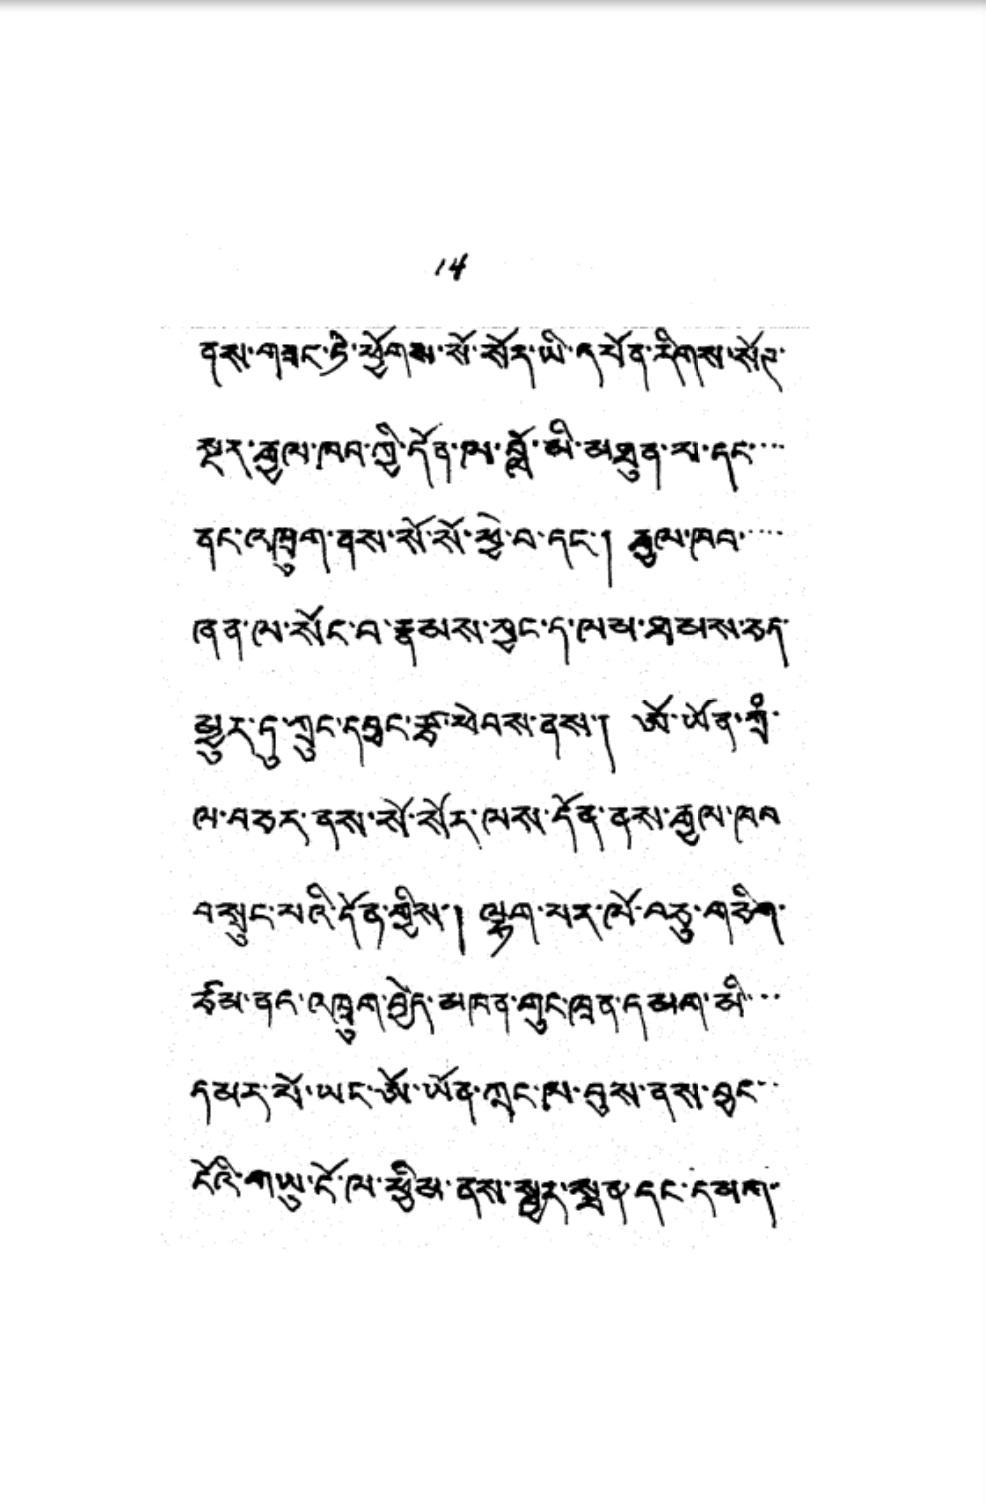 14
ནས་གཟང་ཏེ་ཕྱོགས་སོ་སོར་ཡི་ད་པོན་རིགས་སོཊ་
སྔར་རྒྱལ་ཁབ་ཀྱི་དོན་ལ་བློ་མི་མཐུན་པ་དང་····
ནང་འཁྲུག་ནས་སོ་སོ་ཕྱེ་བ་དང་། རྒྱལ་ཁབ་····
ཞན་ལ་སོང་བ་རྣམས་ཀྱང་ད་ལམ་ཐམས་ཅད་
མྱུར་དུ་ཀྲུང་དབྱང་རྩ་ཕེབས་ནས། ཨོ་ཡོན་ཀྲྀ་
ལ་བཅར་ནས་སོ་སོར་ལས་དོན་ནས་རྒྱལ་ཁབ
བསྲུང་པའི་དོན་གྱིས་། ལྷག་པར་ལོ་བཅུ་གཅིག་
ཙམ་ནང་འཁྲུག་བྱེད་མཁན་གུང་ཁྲན་དམག་མི་···
དམར་པོ་ཡང་ཨོ་ཡོན་ཀྲང་ལ་བུས་ནས་བྱང་··
ངོའི་གཡུ་ངོ་ལ་ཕྱིམ་ནས་སྦྱར་སྨན་དང་དམག་